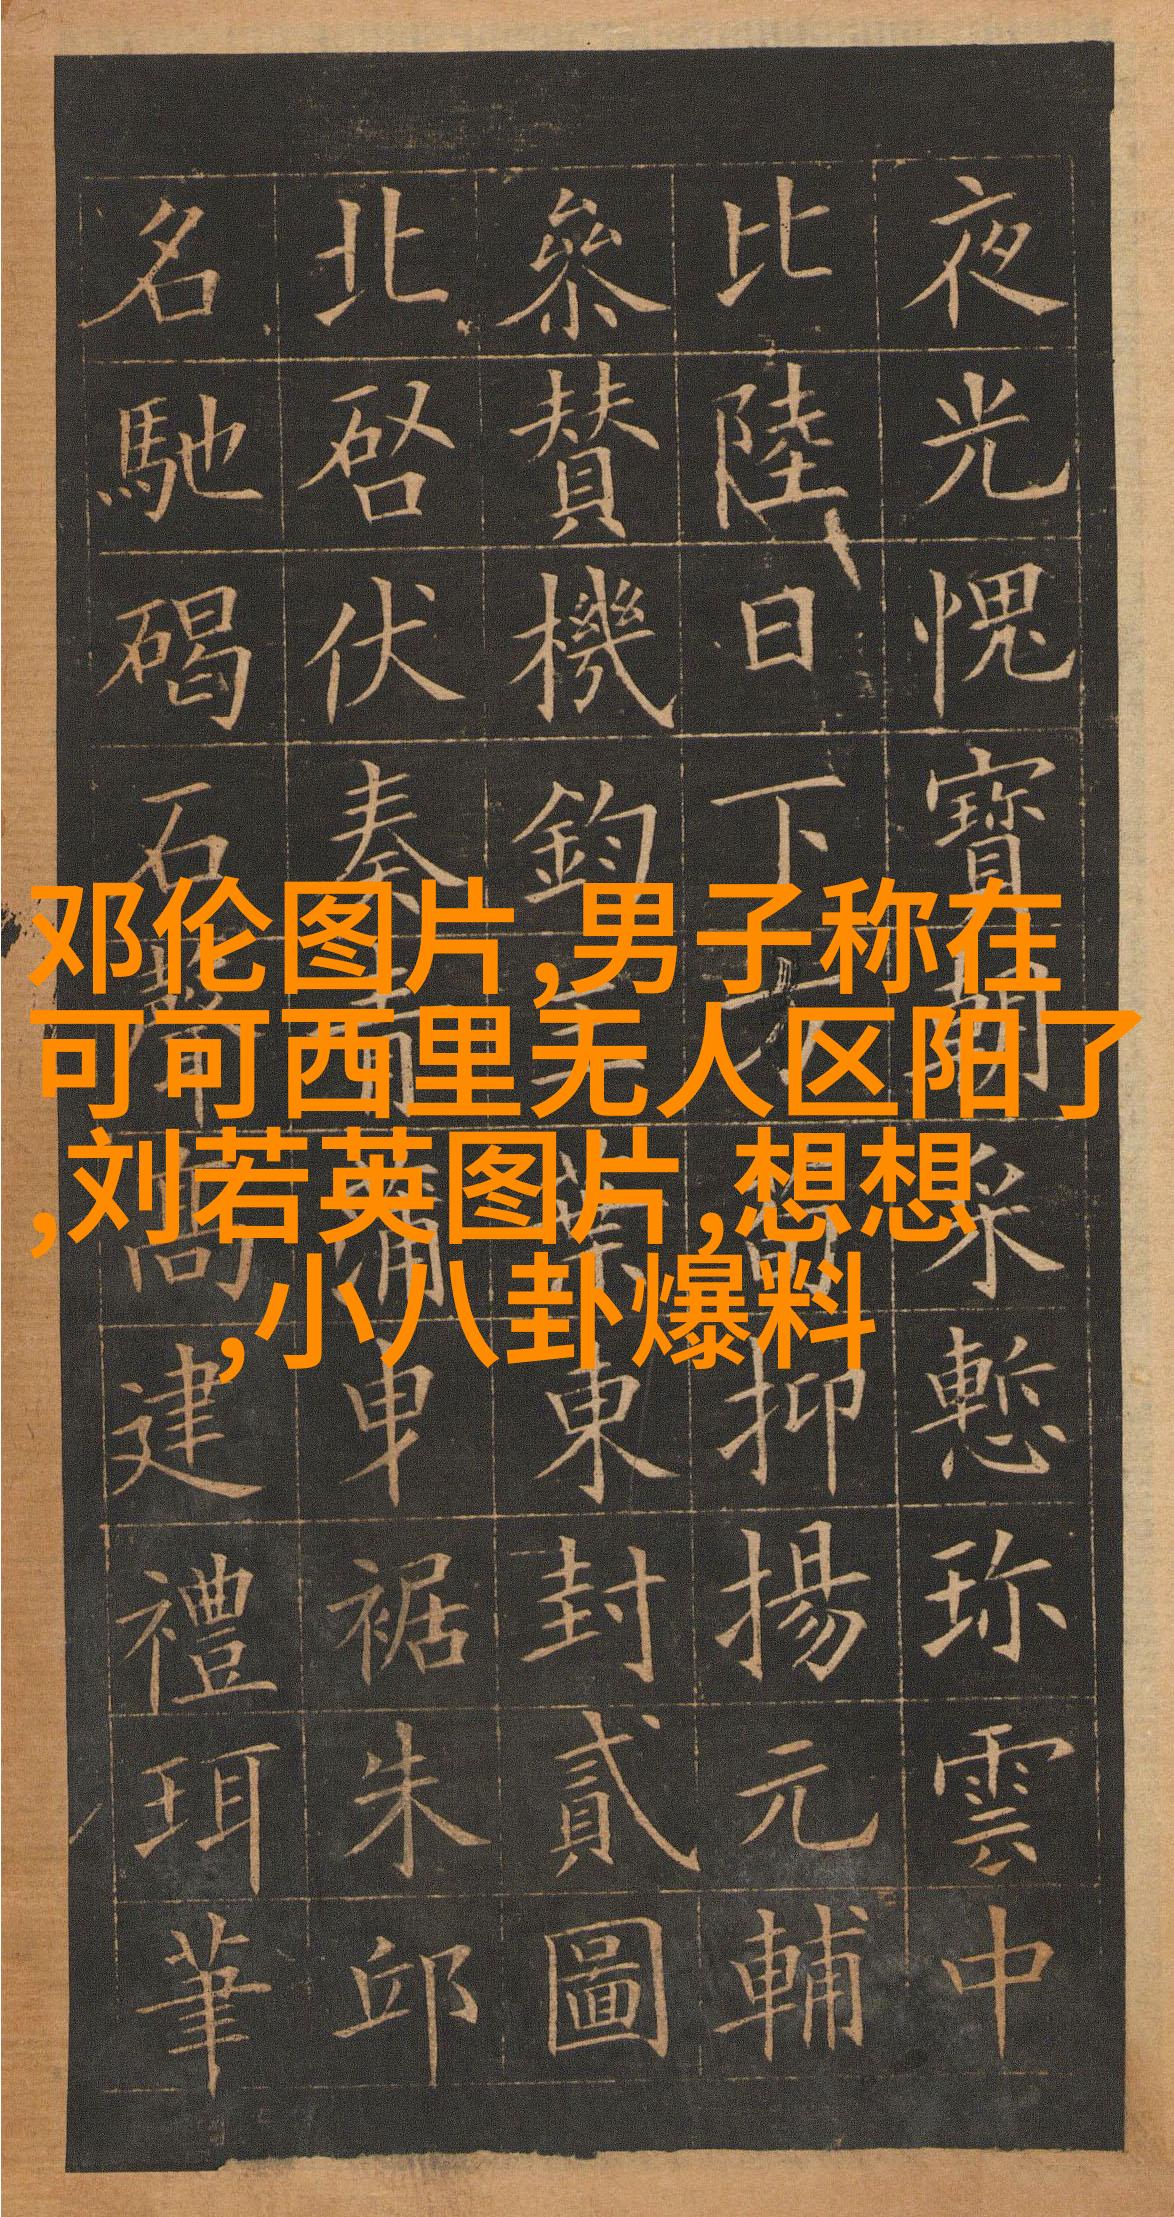 夜光愧寶朝采慙珎雲中
比陸日下抑揚元輔
參賛機鈞東封貳圖
北啓伏奏青蒲卑裾朱邱
名馳碣石聲高建禮珥筆
邓伦图片,男子称在
可可西里无人区阳了
,刘若英图片,想想
,小八卦爆料